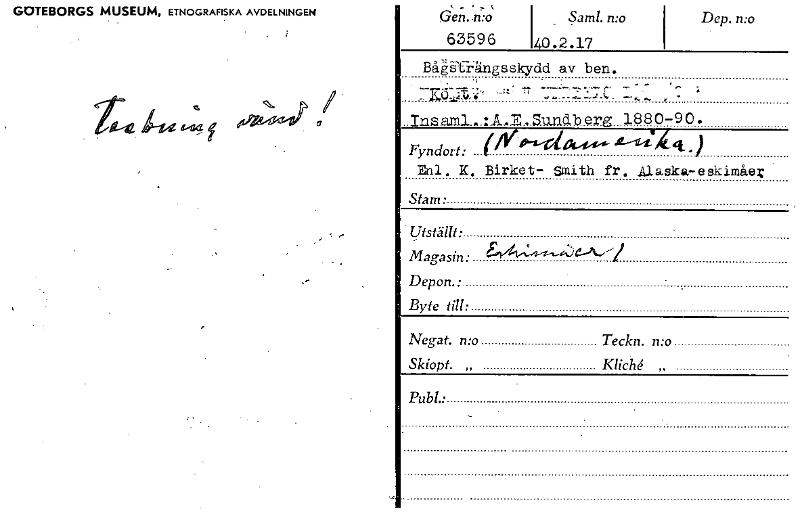 GÖTEBORGS MUSEUM, ETNOGRAFISKA AVDELNINGEN
Teckning vänd!
Gen. n:o Saml. n:o Dep. n:o
63596 40.2.17
Bågsträngsskydd av ben.
Köpt:
Insaml.:A.E.Sundberg 1880-90.
Fyndort: (Nordamerika.)
Enl. K. Birket- Smith fr. Alaska-eskimåer
Stam:
Utställt:
Magasin: Eskimåer
Depon.:
Byte till:
Negat. n:o Teckn. n:o
Skiopt. „ Kliché „
Publ.: